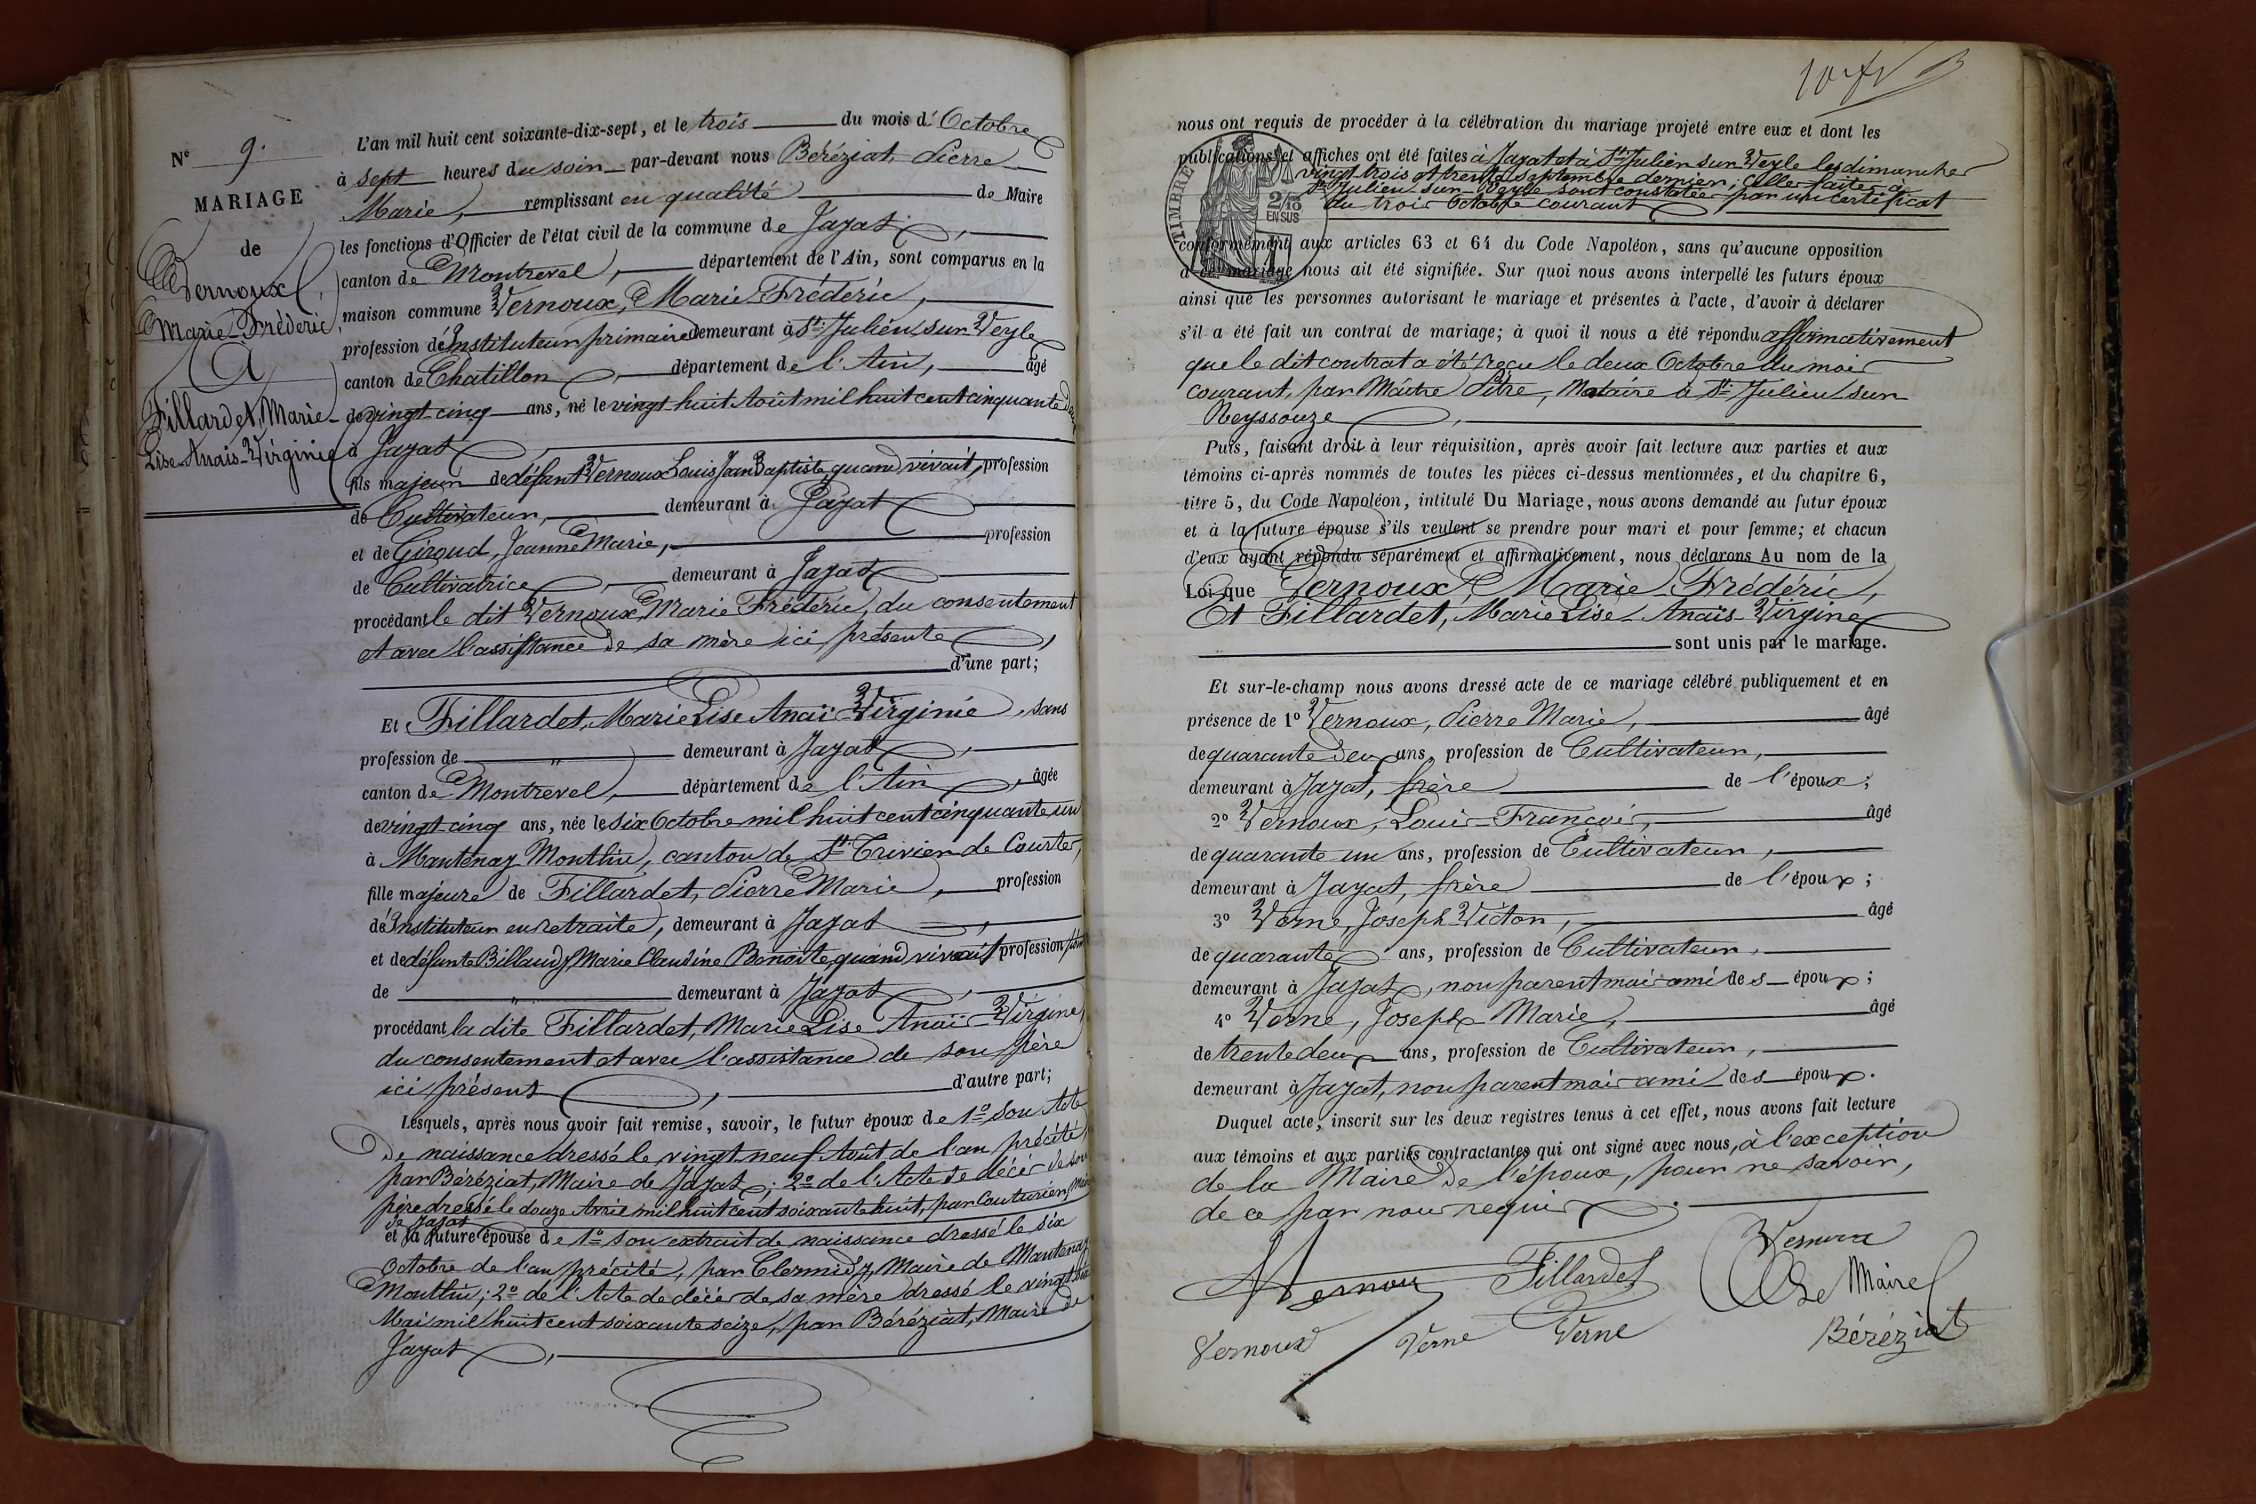 N° 9.
MARIAGE
de
Vernoux,
Marie-Fréderic,
Et
Fillardet, Marie-
Lise-Anaïs-Virginie
L'an mil huit cent soixante-dix-sept, et le trois du mois d'Octobre
à sept heures du soir par-devant nous Béréziat, Pierre
Marie, remplissant en qualité de Maire
les fonctions d'Officier de l'état civil de la commune de Jayat,
canton de Montrevel, département de l'Ain, sont comparus en la
maison commune Vernoux, Marie Fréderic,
profession d'Instituteur primaire demeurant à St Julien sur Veyle
canton de Chatillon, département de l'Ain, âgé
de vingt-cinq ans, né le vingt-huit Août mil huit cent cinquante deux
à Jayat,
fils majeur de défunt Vernoux Louis Jean Baptiste, quand vivait, profession
de Cultivateur, demeurant à Jayat
et de Giroud, Jeanne Marie, profession
de Cultivatrice, demeurant à Jayat
procédant le dit Vernoux, Marie Fréderic, du consentement
et avec l'assistance de sa mère ici présente,
d'une part;
Et Fillardet, Marie Lise Anaïs Virginie, sans
profession de " demeurant à Jayat,
canton de Montrevel, département de l'Ain, âgée
de vingt-cinq ans, née le six Octobre mil huit cent cinquante un
à Mantenay Montlin, canton de St Trivier de Courtes,
fille majeure de Fillardet, Pierre Marie, profession
d'Instituteur en retraite, demeurant à Jayat,
et de défunte Billaud, Marie Claudine Benoite, quand vivait profession
de " demeurant à Jayat,
procédant la dite Fillardet, Marie Lise Anaïs Virgine,
du consentement et avec l'assistance de son père
ici présent, d'autre part;
Lesquels, après nous avoir fait remise, savoir, le futur époux de 1° son Acte
de naissance dressé le vingt-neuf Août de l'an précité,
par Béréziat, Maire de Jayat; 2° de l'Acte de décès de son
père dressé le douze Avril mil huit cent soixante huit, par Couturier, Maire
de Jayat
et la future épouse de 1° son extrait de naissance dressé le six
Octobre de l'an précité, par Clermidy, Maire de Mantenay
Montlin; 2° de l'Acte de décès de sa mère dressé le vingt
Mai mil huit cent soixante seize, par Béréziat, Maire de
Jayat,
nous ont requis de procéder à la célébration du mariage projeté entre eux et dont les
publications et affiches ont été faites à Jayat et à St Julien sur Veyle les dimanches
vingt trois et trente Septembre dernier; celles faites à
St Julien sur Veyle sont constatées par un certificat
du trois Octobre courant
TIMBRE
2/10
EN SUS
conformément aux articles 63 et 64 du Code Napoléon, sans qu'aucune opposition
à ce mariage nous ait été signifiée. Sur quoi nous avons interpellé les futurs époux
ainsi que les personnes autorisant le mariage et présentes à l'acte, d'avoir à déclarer
s'il a été fait un contrat de mariage; à quoi il nous a été répondu affirmativement
que le dit contrat a été reçu le deux Octobre du mois
courant, par Maître Pitre, Notaire à St Julien sur
Reyssouze,
Puis, faisant droit à leur réquisition, après avoir fait lecture aux parties et aux
témoins ci-après nommés de toutes les pièces ci-dessus mentionnées, et du chapitre 6,
titre 5, du Code Napoléon, intitulé Du Mariage, nous avons demandé au futur époux
et à la future épouse s'ils veulent se prendre pour mari et pour femme; et chacun
d'eux ayant répondu séparément et affirmativement, nous déclarons Au nom de la
Loi que Vernoux, Marie Fréderic,
Et Fillardet, Marie Lise-Anaïs-Virgine
sont unis par le mariage.
Et sur-le-champ nous avons dressé acte de ce mariage célébré publiquement et en
présence de 1° Vernoux, Pierre Marie, âgé
de quarante deux ans, profession de Cultivateur,
demeurant à Jayat, frère de l'époux;
2° Vernoux, Louis-François, âgé
de quarante un ans, profession de Cultivateur,
demeurant à Jayat, frère de l'époux;
3° Verne, Joseph Victor, âgé
de quarante ans, profession de Cultivateur,
demeurant à Jayat, non parent mais ami des époux;
4° Verne, Joseph Marie, âgé
de trente deux ans, profession de Cultivateur,
demeurant à Jayat, non parent mais ami des époux.
Duquel acte, inscrit sur les deux registres tenus à cet effet, nous avons fait lecture
aux témoins et aux parties contractantes qui ont signé avec nous, à l'exception
de la Maire de l'époux, pour ne savoir,
de ce par nous requis.
Vernoux Fillardet Vernoux
Le Maire
Vernoux Verne Verne Béréziat